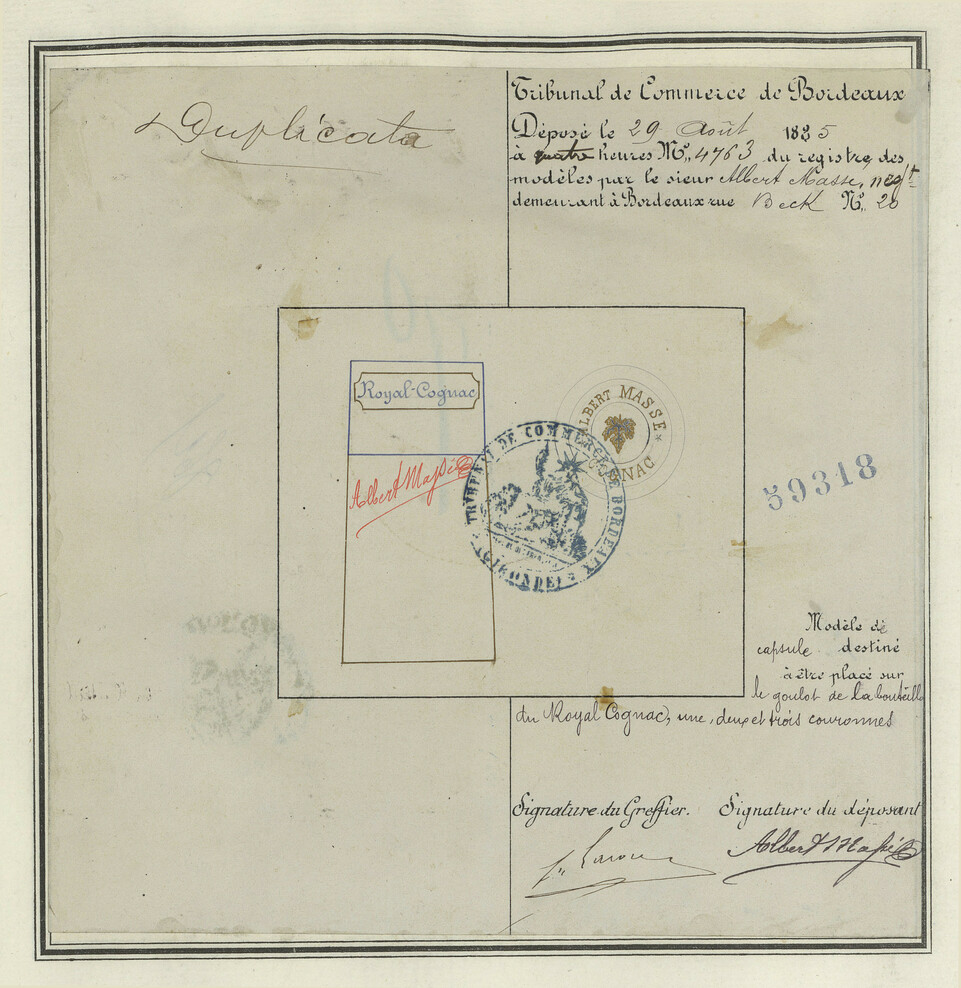 Duplicata
Tribunal de Commerce de Bordeaux
Déposé le 29 Août 1885
à quatre heures Nº 4763 du registre des
modèles par le sieur Albert Masse, negt
demeurant à Bordeaux rue Beck Nº 20
Royal-Cognac
Albert Masse
ALBERT MASSE
COGNAC
TRIBUNAL DE COMMERCE DE BORDEAUX
(GIRONDE)
59318
Modèle de
capsule destiné
à être placé sur
le goulot de la bouteille
du Royal Cognac, une, deux et trois couronnes
Signature du Greffier. Signature du déposant
Albert Masse